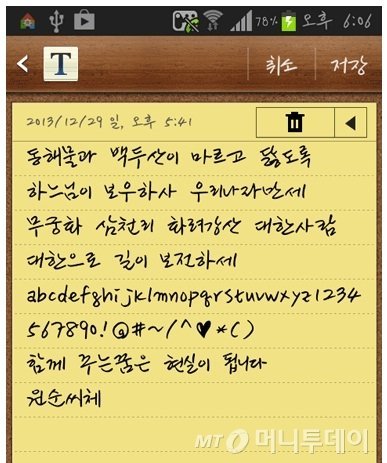 78% 오후 6:06
T 취소 저장
2013/12/29 일, 오후 5:41
동해물과 백두산이 마르고 닳도록
하느님이 보우하사 우리나라만세
무궁화 삼천리 화려강산 대한사람
대한으로 길이 보전하세
abcdefghijklmnopqrstuvwxyz1234
567890!@#~/^♥*()
함께 꾸는꿈은 현실이 됩니다
원순씨체
MT 머니투데이